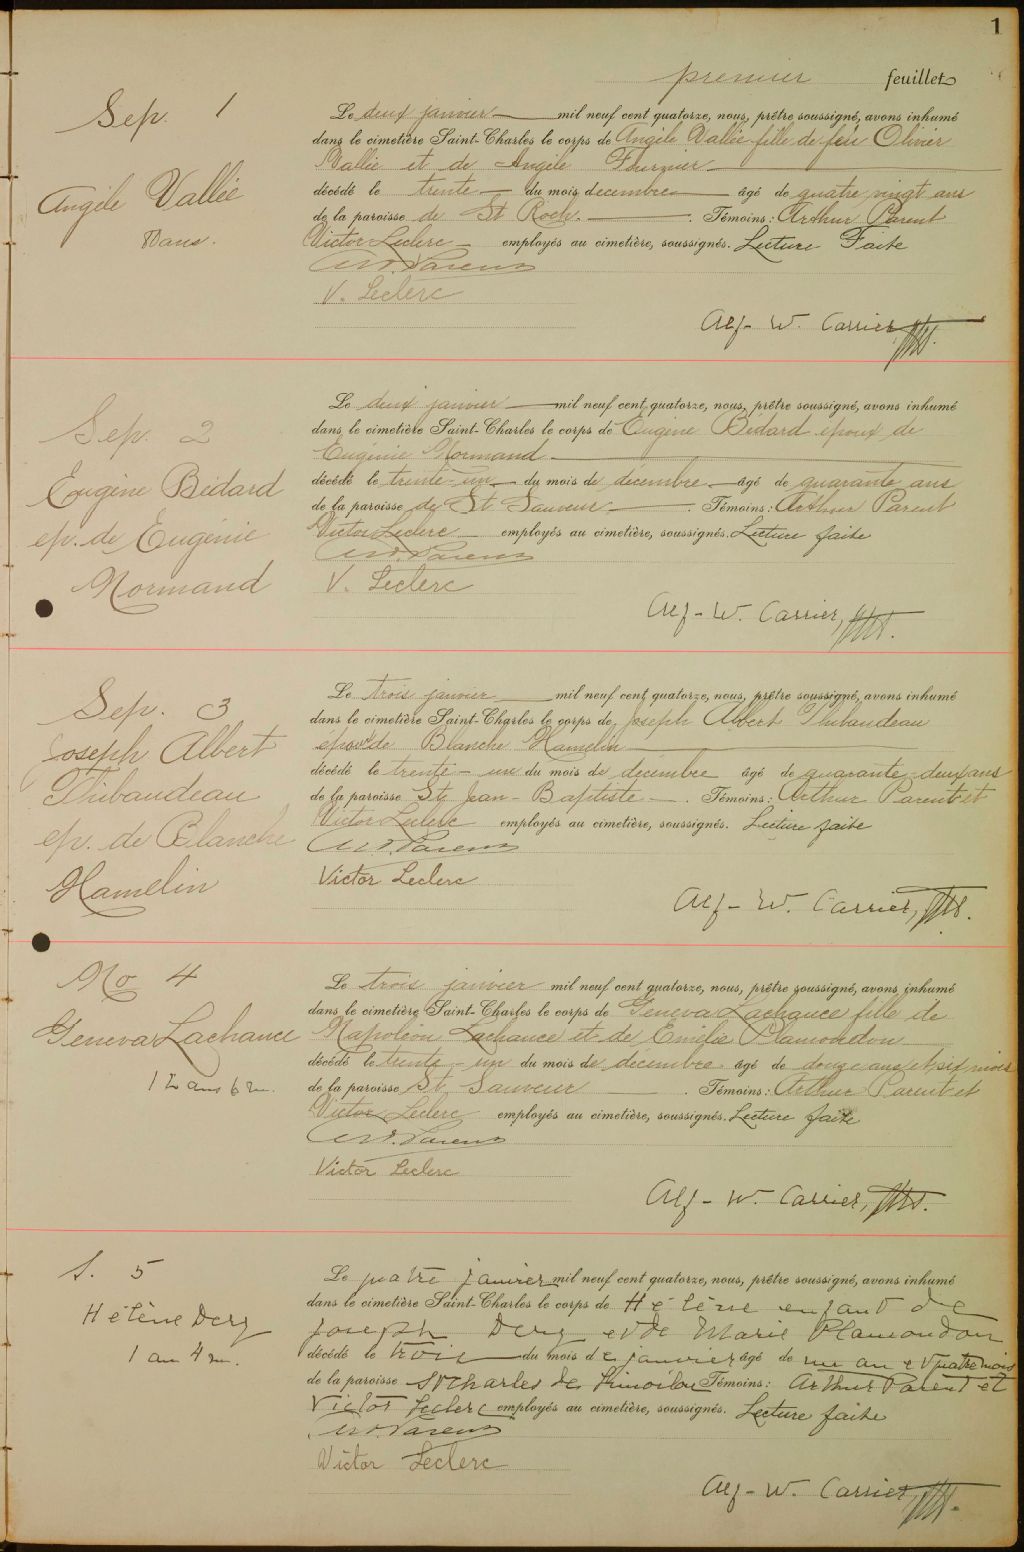 1
premier feuillet
Sep. 1
Angèle Vallée
Le deux janvier mil neuf cent quatorze, nous, prêtre soussigné, avons inhumé
dans le cimetière Saint-Charles le corps de Angèle Vallée fille de feu Olivier
Vallée et de Angèle Fournier
décédé le trente du mois decembre âgé de quatre vingt ans
de la paroisse de St Roch. Témoins: Arthur Parent
Victor Leclerc employés au cimetière, soussignés. Lecture Faite
Art. Parent
V. Leclerc
Alf-W. Carrier, Ptre.
Sep. 2
Eugène Bédard
ep. de Eugénie
Normand
Le deux janvier mil neuf cent quatorze, nous, prêtre soussigné, avons inhumé
dans le cimetière Saint-Charles le corps de Eugène Bédard epoux de
Eugénie Normand
décédé le trente-un du mois de décembre âgé de quarante ans
de la paroisse de St Sauveur Témoins: Arthur Parent
Victor Leclerc employés au cimetière, soussignés. Lecture faite
Art. Parent
V. Leclerc
Alf-W. Carrier, Ptre.
Sep. 3
Joseph Albert
Thibaudeau
ep. de Blanche
Hamelin
Le trois janvier mil neuf cent quatorze, nous, prêtre soussigné, avons inhumé
dans le cimetière Saint-Charles le corps de Joseph Albert Thibaudeau
époux de Blanche Hamelin
décédé le trente-un du mois de décembre âgé de quarante-deux ans
de la paroisse St Jean-Baptiste. Témoins: Arthur Parent et
Victor Leclerc employés au cimetière, soussignés. Lecture faite
Art. Parent
Victor Leclerc
Alf-W. Carrier, Ptre.
No 4
Geneva Lachance
12 ans 6 m.
Le trois janvier mil neuf cent quatorze, nous, prêtre soussigné, avons inhumé
dans le cimetière Saint-Charles le corps de Geneva Lachance fille de
Napoléon Lachance et de Emélie Plamondon
décédé le trente-un du mois de decembre âgé de douze ans et six mois
de la paroisse St Sauveur Témoins: Arthur Parent et
Victor Leclerc employés au cimetière, soussignés. Lecture faite
Art. Parent
Victor Leclerc
Alf-W. Carrier, Ptre.
S. 5
Hélène Dery
1 an 4 m.
Le quatre janvier mil neuf cent quatorze, nous, prêtre soussigné, avons inhumé
dans le cimetière Saint-Charles le corps de Hélène enfant de
Joseph Dery et de Marie Plamondon
décédé le trois du mois de janvier âgé de un an et quatre mois
de la paroisse St Charles de Limoilou Témoins: Arthur Parent et
Victor Leclerc employés au cimetière, soussignés. Lecture faite
Art. Parent
Victor Leclerc
Alf-W. Carrier, Ptre.